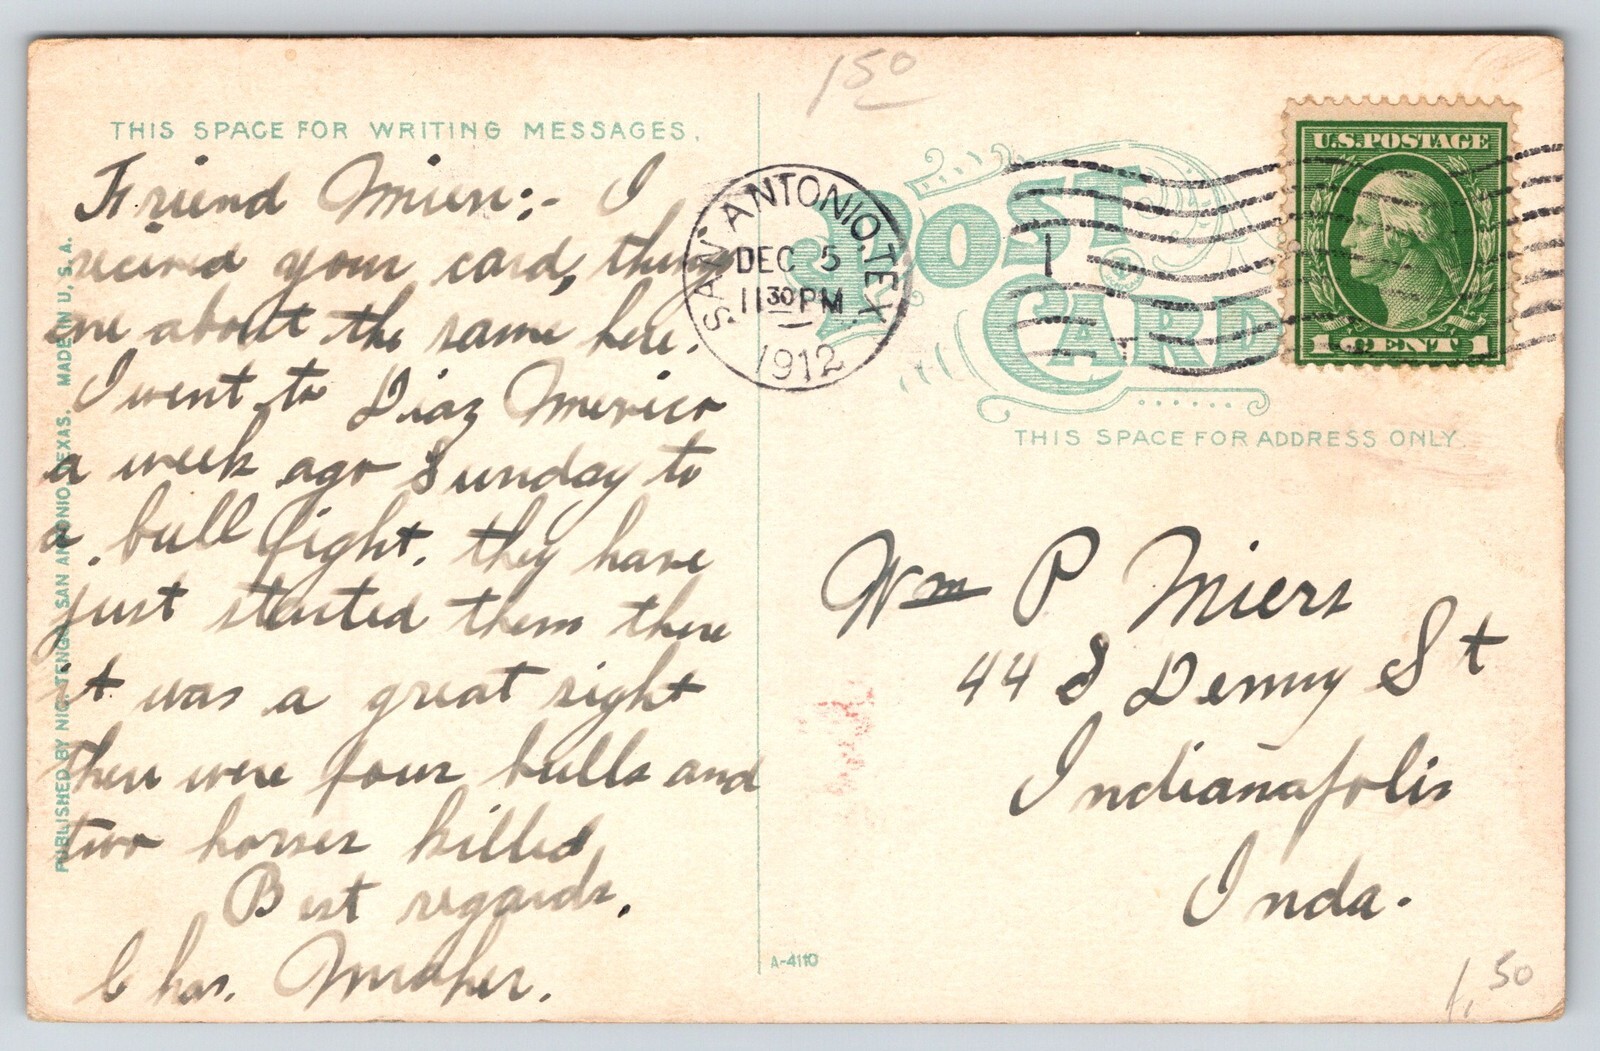 150
THIS SPACE FOR WRITING MESSAGES.
Friend Miers:- I
recieved your card, things
are about the same here.
I went to Diaz Mexico
a week ago Sunday to
a bull fight. they have
just started them there
it was a great sight
there were four bulls and
two horses killed
Best regards.
Chas.
PUBLISHED BY NIC. TENGG, SAN ANTONIO, TEXAS. MADE IN U.S.A.
SAN ANTONIO, TEX.
DEC 5
11 30 PM
1912
1
POST CARD
U.S. POSTAGE
1 CENT 1
THIS SPACE FOR ADDRESS ONLY.
Wm P Miers
44 S Denny St
Indianapolis
Inda.
A-4110
1.50